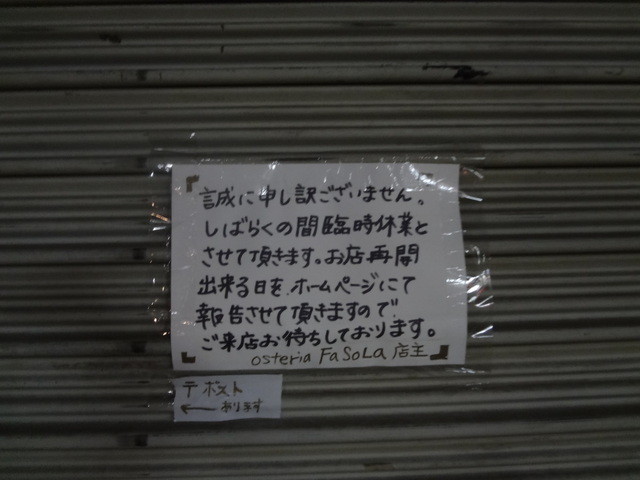 誠に申し訳ございません。
しばらくの間臨時休業と
させて頂きます。お店再開
出来る日を、ホームページにて
報告させて頂きますので
ご来店お待ちしております。
osteria FaSoLa 店主
〒 ポスト
← あります